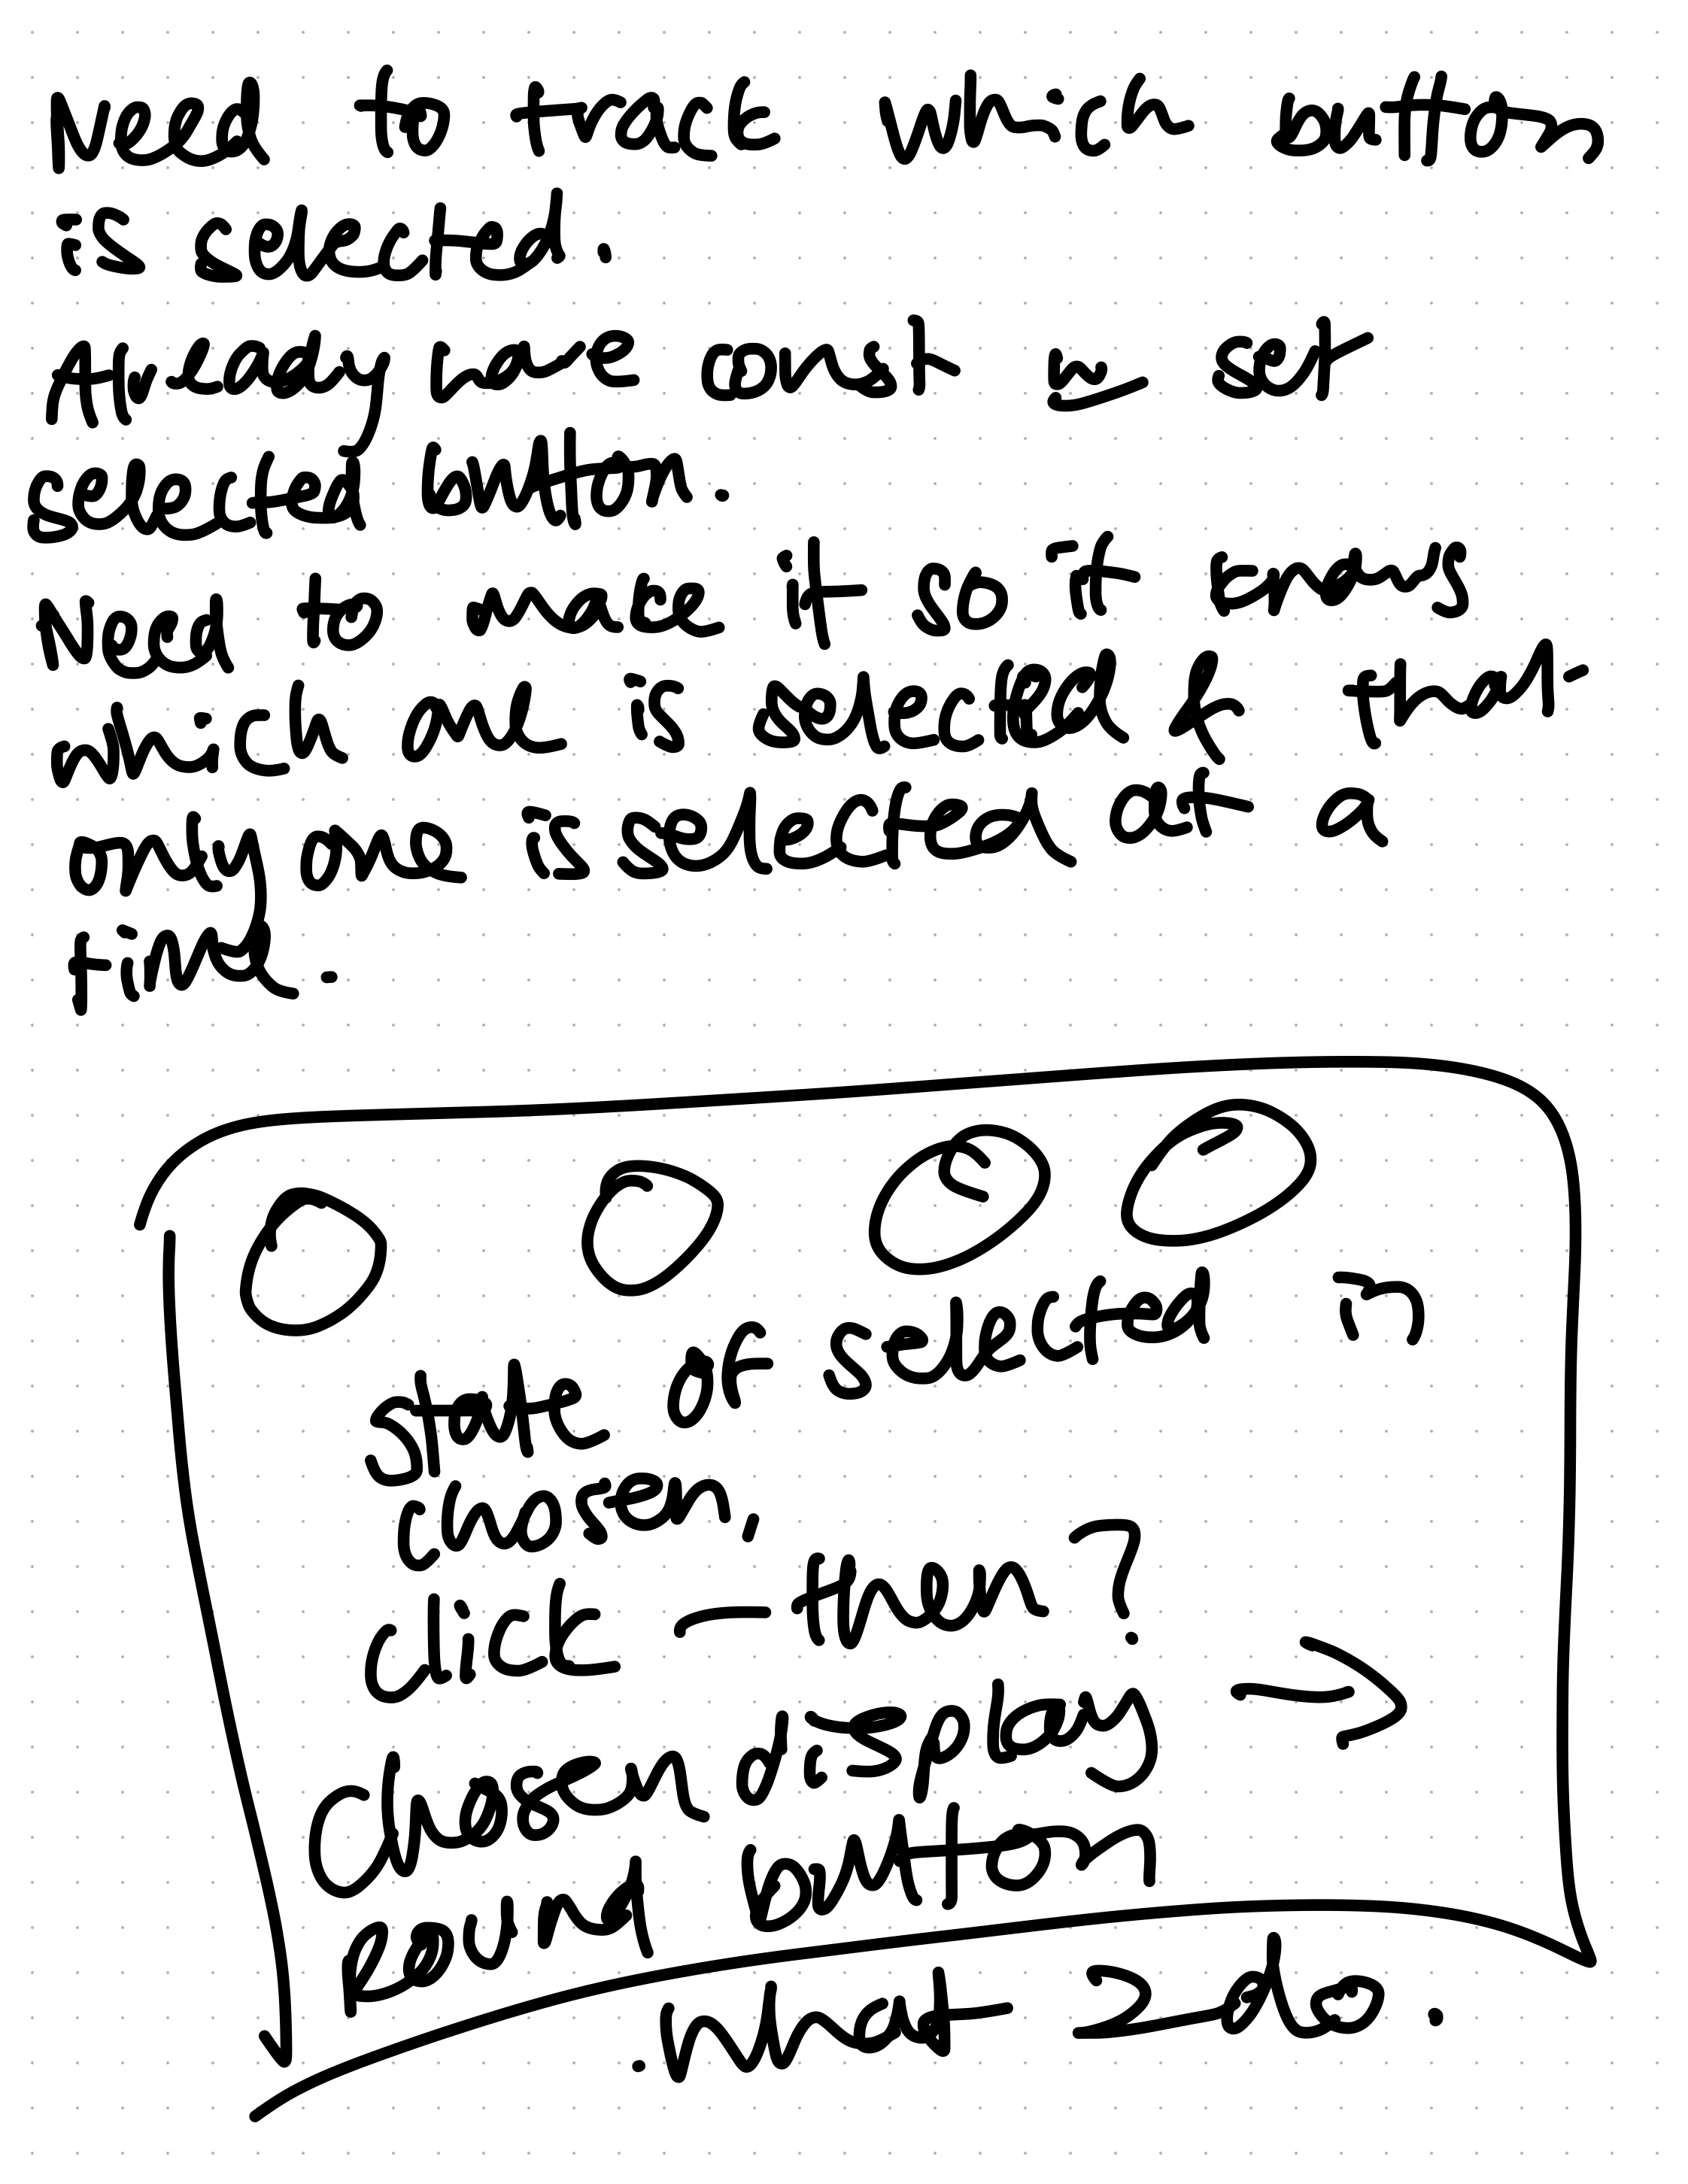 Need to track which button
is selected.
Already have const w set
selected button.
Need to make it so it knows
which one is selected & that
only one is selected at a
time.
state of selected in
chosen.
click - then?
Chosen display →
Round button
. What 2 do.